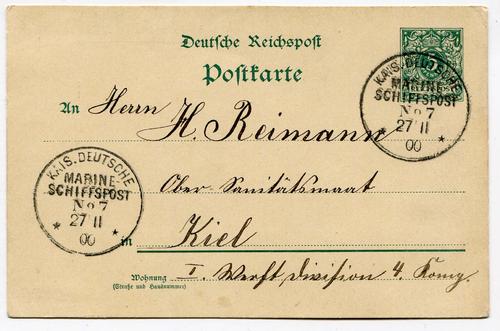 Deutsche Reichspost
Postkarte
KAIS. DEUTSCHE
MARINE
SCHIFFSPOST
No 7
27 11
00
An Herrn H. Reimann
KAIS. DEUTSCHE
MARINE
SCHIFFSPOST
No 7
27 11
00
Ober Sanitätsmaat
in Kiel
Wohnung I. Werft Division 4. Komp.
(Straße und Hausnummer)